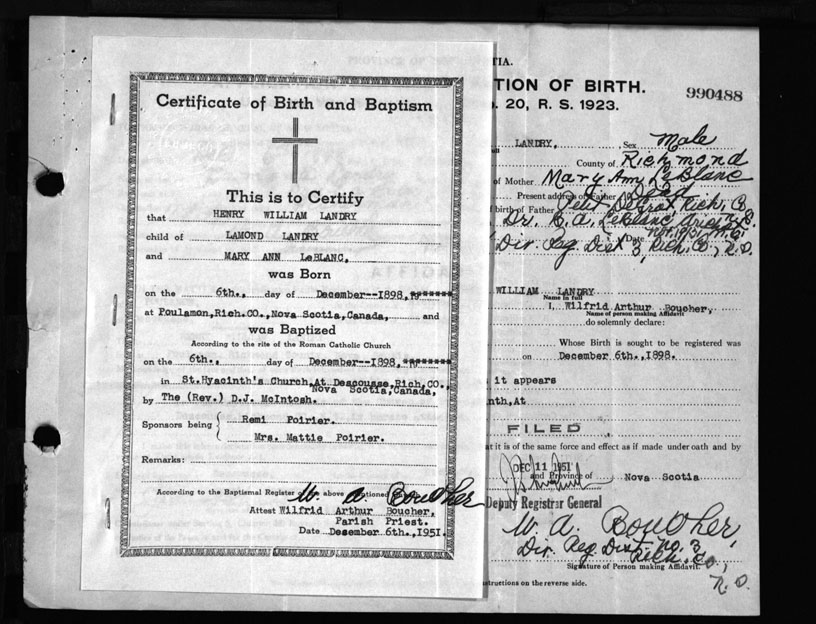 Certificate of Birth and Baptism
This is to Certify
that HENRY WILLIAM LANDRY
child of LAMOND LANDRY
and MARY ANN LeBLANC,
was Born
on the 6th., day of December--1898, 19*******
at Poulamon,Rich.CO.,Nova Scotia,Canada, and
was Baptized
According to the rite of the Roman Catholic Church
on the 6th., day of December--1898, *******
in St.Hyacinth's Church,At Descousse,Rich,CO.,
Nova Scotia,Canada,
by The (Rev.) D.J. McIntosh.
Sponsors being { Remi Poirier.
Mrs. Mattie Poirier.
Remarks:
According to the Baptismal Register above
W. A. Boucher
Attest Wilfrid Arthur Boucher,
Parish Priest.
Date Desember 6th., 1951.
TIA.
TION OF BIRTH.
990488
. 20, R. S. 1923.
LANDRY, Sex Male
County of Richmond
of Mother Mary Amy LeBlanc
Present address of Father Dead
birth of Father Petit Rich, Co
Dr. C. A. LeBlanc
Date
Div. Reg. Dist 3, Rich. Co, N.S.
WILLIAM LANDRY
Name in full
I, Wilfrid Arthur Boucher,
Name of person making Affidavit
do solemnly declare:
Whose Birth is sought to be registered was
on December 6th., 1898.
it appears
nth,At
FILED
at it is of the same force and effect as if made under oath and by
DEC 11 1951
and Province of Nova Scotia
Deputy Registrar General
W. A. Boucher,
Div. Reg. Dist. No. 3
Rich. Co.,
Signature of Person making Affidavit.
N. S.
structions on the reverse side.